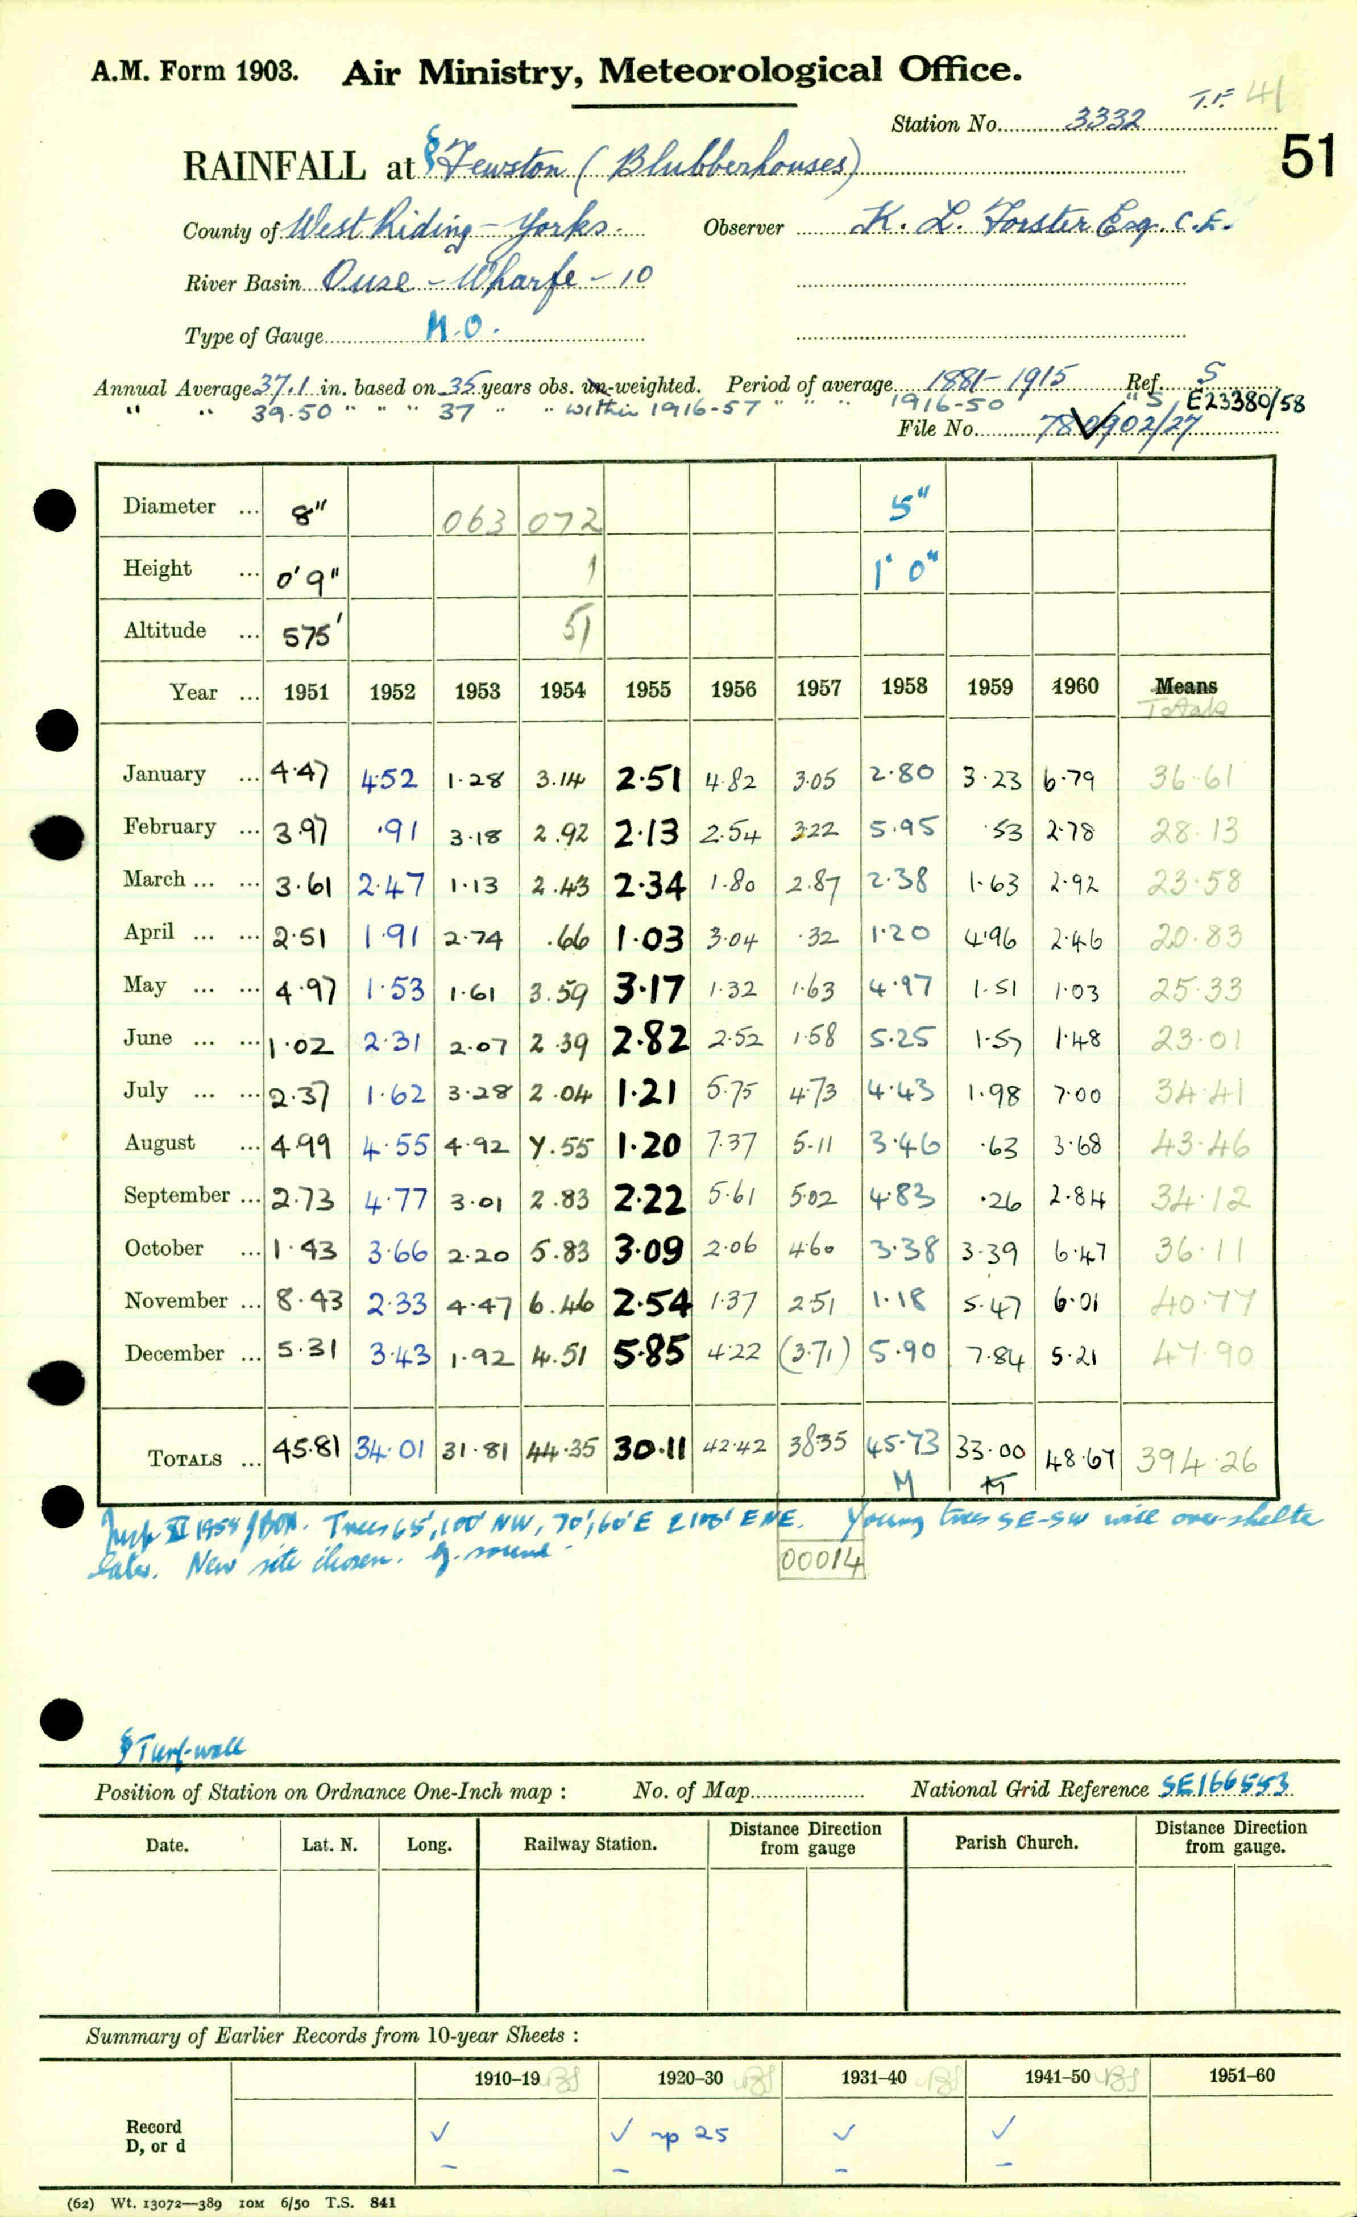 A.M. Form 1903. Air Ministry, Meteorological Office.
T.F. 41
Station No. 3332
51
RAINFALL at § Fewston (Blubberhouses)
County of West Riding - Yorks. Observer K. L. Forster Esq. C.E.
River Basin Ouse - Wharfe - 10
Type of Gauge M.O.
Annual Average 37.1 in. based on 35 years obs. un-weighted. Period of average 1881-1915 Ref. S
" " 39.50 " " " 37 " " within 1916-57 " " " 1916-50 " S E23380/58
File No. 780902/27
Diameter ... 8" 063 072 5"
Height ... 0'9" 1 1' 0"
Altitude ... 575' 51
Year ... 1951 1952 1953 1954 1955 1956 1957 1958 1959 1960 Means
Totals
January ... 4.47 4.52 1.28 3.14 2.51 4.82 3.05 2.80 3.23 6.79 36.61
February ... 3.97 .91 3.18 2.92 2.13 2.54 3.22 5.95 .53 2.78 28.13
March ... ... 3.61 2.47 1.13 2.43 2.34 1.80 2.87 2.38 1.63 2.92 23.58
April ... ... 2.51 1.91 2.74 .66 1.03 3.04 .32 1.20 4.96 2.46 20.83
May ... ... 4.97 1.53 1.61 3.59 3.17 1.32 1.63 4.97 1.51 1.03 25.33
June ... ... 1.02 2.31 2.07 2.39 2.82 2.52 1.58 5.25 1.57 1.48 23.01
July ... ... 2.37 1.62 3.28 2.04 1.21 5.75 4.73 4.43 1.98 7.00 34.41
August ... 4.99 4.55 4.92 7.55 1.20 7.37 5.11 3.46 .63 3.68 43.46
September ... 2.73 4.77 3.01 2.83 2.22 5.61 5.02 4.83 .26 2.84 34.12
October ... 1.43 3.66 2.20 5.83 3.09 2.06 4.60 3.38 3.39 6.47 36.11
November ... 8.43 2.33 4.47 6.46 2.54 1.37 2.51 1.18 5.47 6.01 40.77
December ... 5.31 3.43 1.92 4.51 5.85 4.22 (3.71) 5.90 7.84 5.21 47.90
TOTALS ... 45.81 34.01 31.81 44.35 30.11 42.42 38.35 45.73 33.00 48.67 394.26
M
Trees 65', 100' NW, 70', 60' E ENE. Young trees SE-SW will over-shelter
later. New site chosen.
00014
§ Turf-wall
Position of Station on Ordnance One-Inch map : No. of Map National Grid Reference SE166553
Date. Lat. N. Long. Railway Station. Distance from Direction gauge Parish Church. Distance from Direction gauge.
Summary of Earlier Records from 10-year Sheets :
1910-19 1920-30 1931-40 1941-50 1951-60
Record ✓ ✓ np 25 ✓ ✓
D, or d – – – –
(62) Wt. 13072—389 10M 6/50 T.S. 841